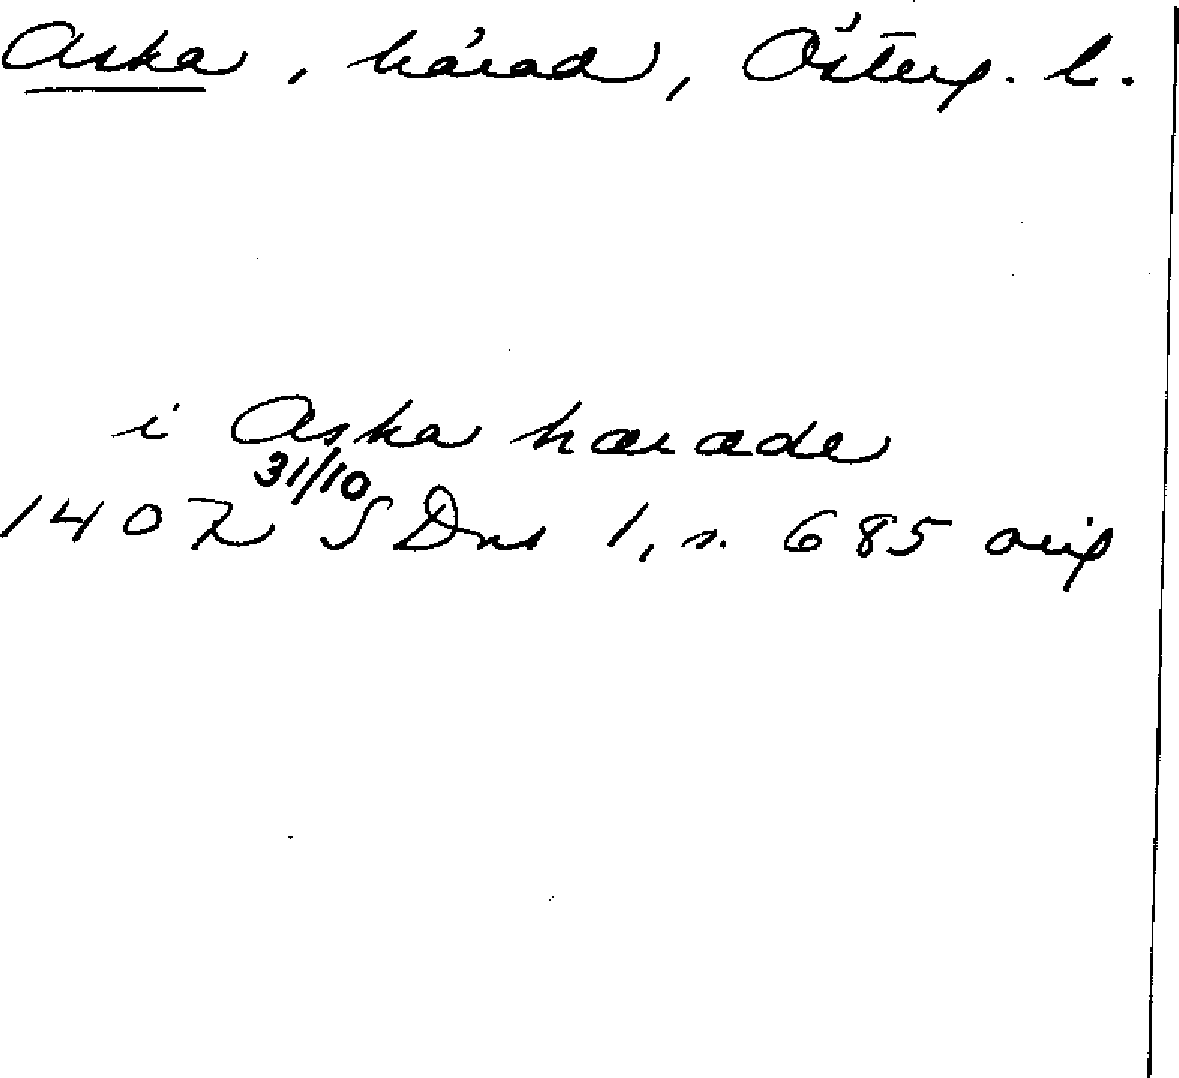 Aska, härad, Österg. l.
i Aska hæræde
31/10
1407 SDns 1, s. 685 orig